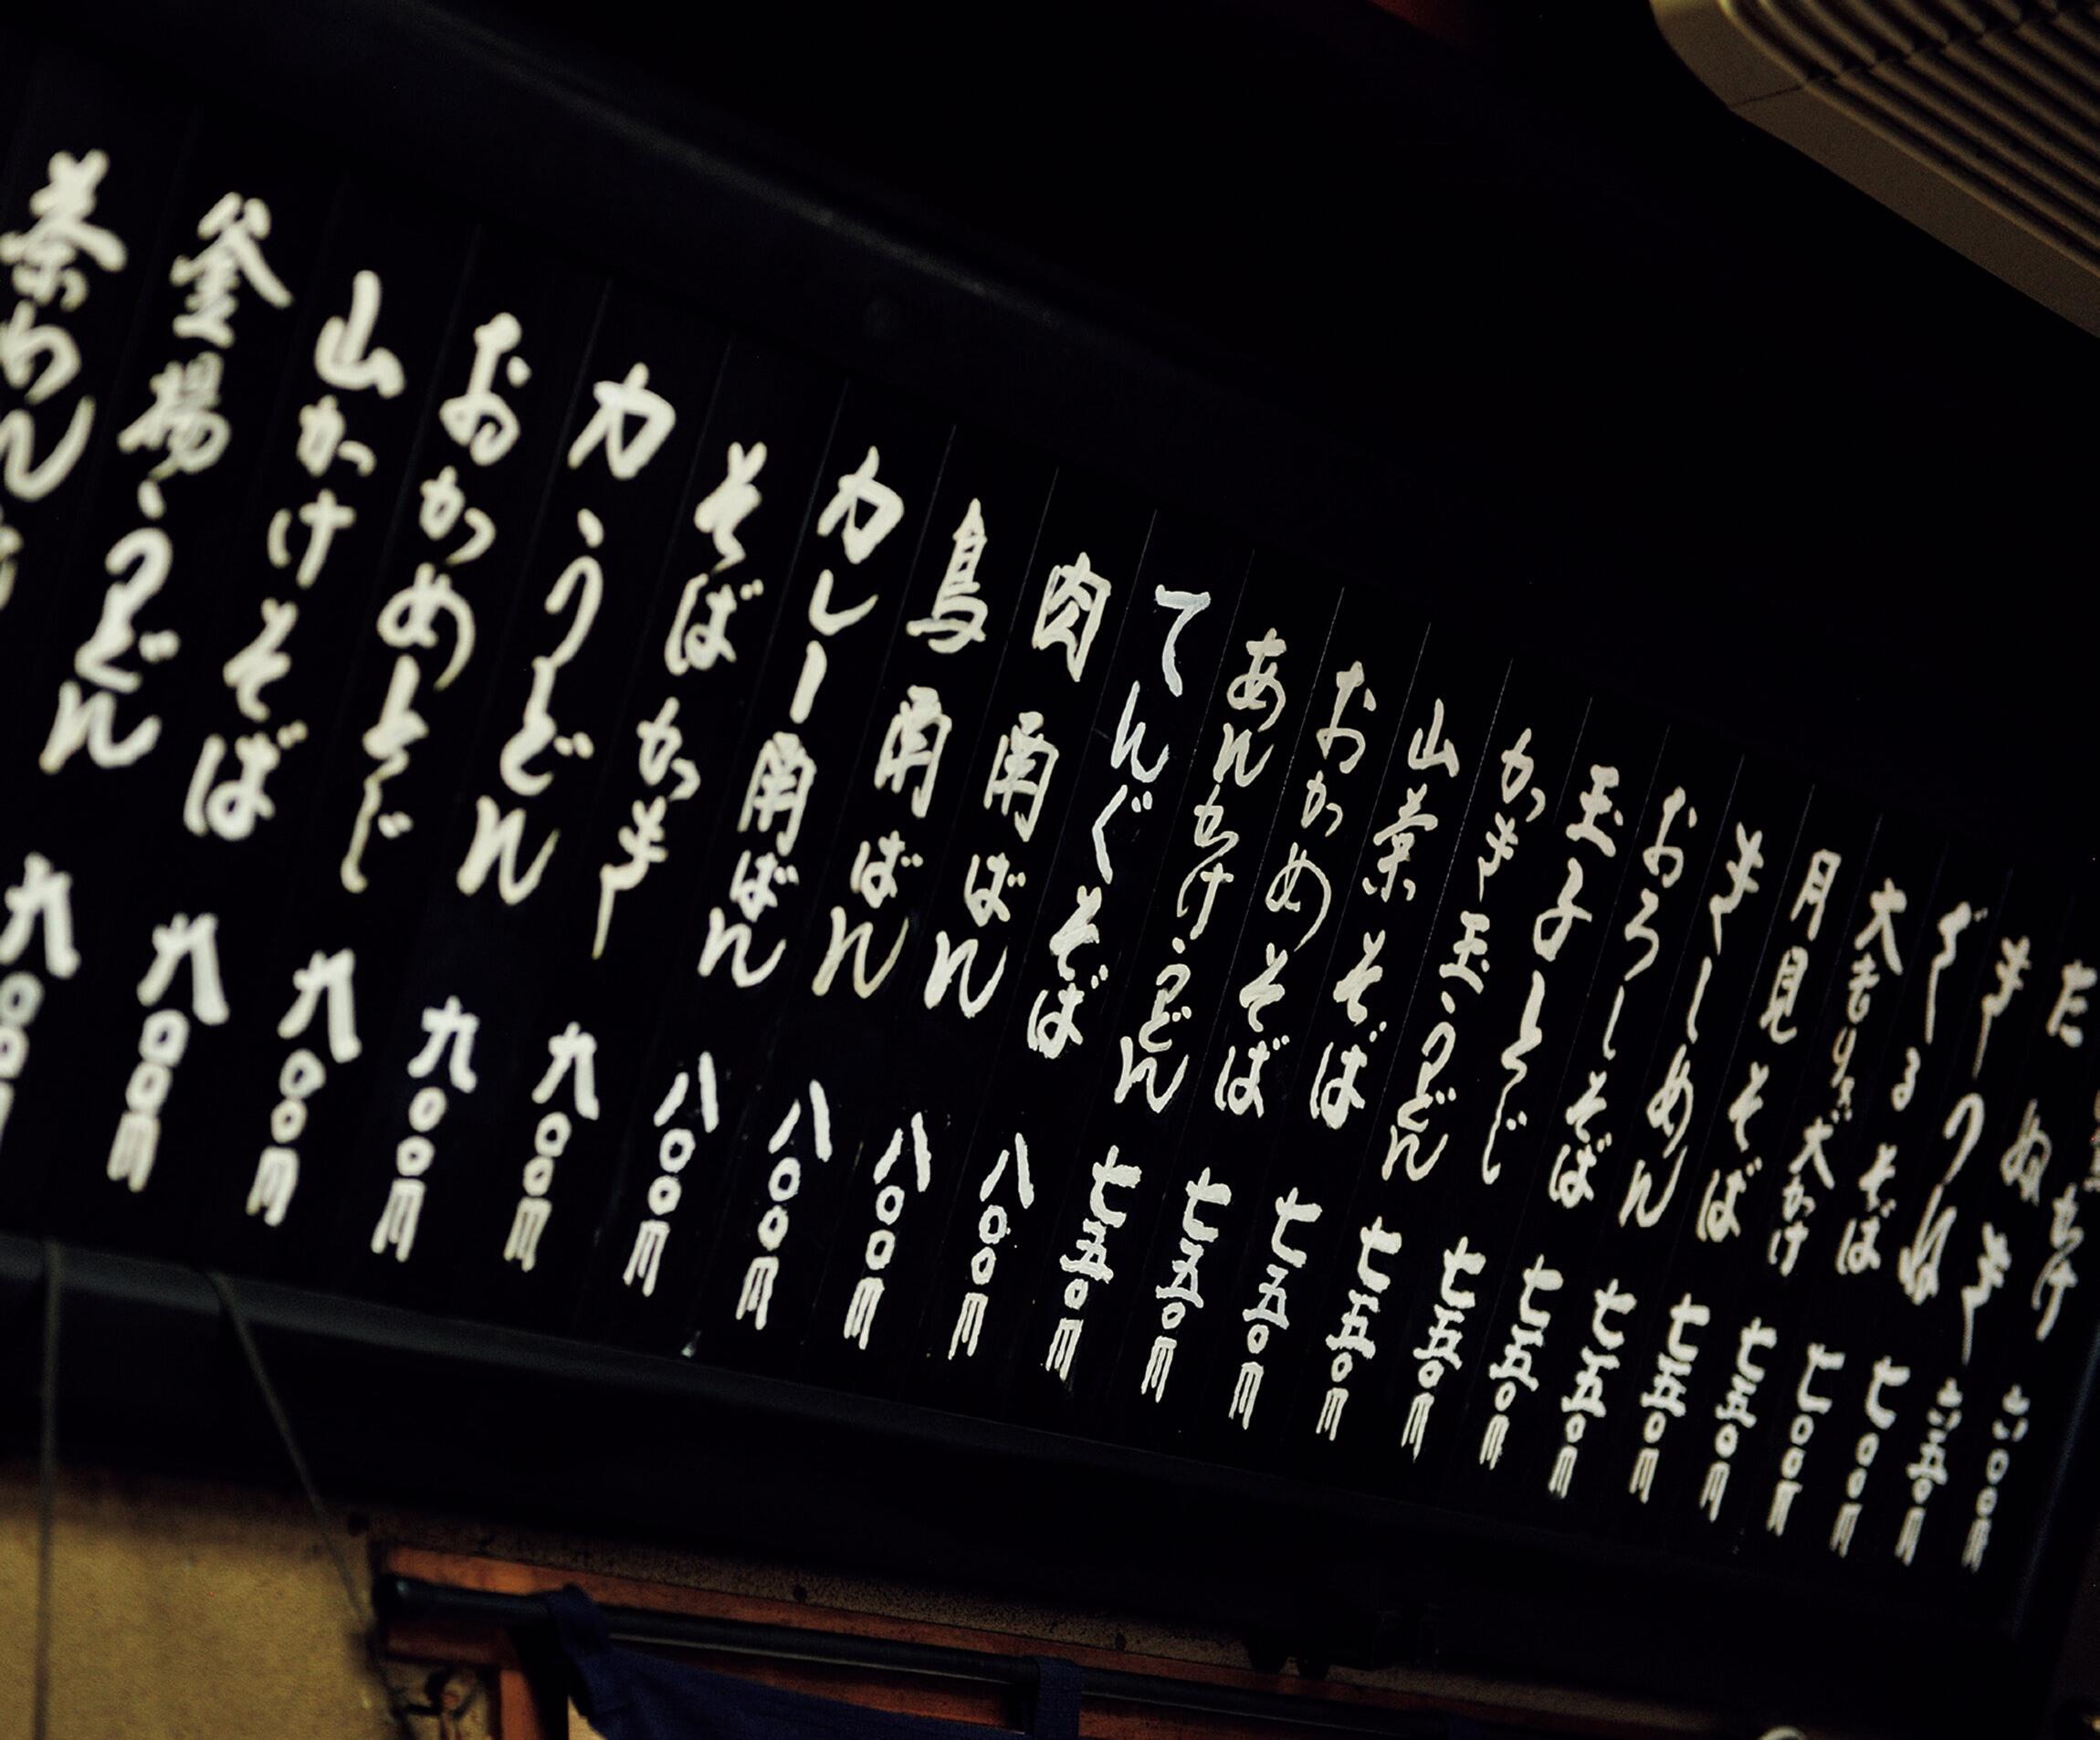 かけ
たぬき 六〇〇円
きつね 六五〇円
ざるそば 七〇〇円
大もり 大かけ 七〇〇円
月見そば 七五〇円
きしめん 七五〇円
おろしそば 七五〇円
玉子とじ 七五〇円
かき玉うどん 七五〇円
山菜そば 七五〇円
おかめそば 七五〇円
あんかけうどん 七五〇円
てんぐそば 七五〇円
肉南ばん 八〇〇円
鳥南ばん 八〇〇円
カレー南ばん 八〇〇円
そばかき 八〇〇円
力うどん 九〇〇円
おかめとじ 九〇〇円
山かけそば 九〇〇円
釜揚うどん 九〇〇円
茶わん 九〇〇